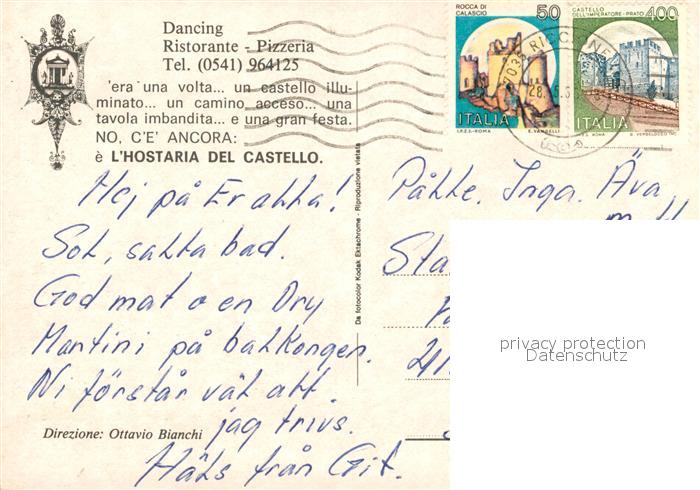 Dancing
Ristorante - Pizzeria
Tel. (0541) 964125
'era una volta... un castello illu-
minato... un camino acceso... una
tavola imbandita... e una gran festa.
NO, C'E' ANCORA:
è L'HOSTARIA DEL CASTELLO.
Hej på Er alla!
Sol, salta bad.
God mat o en Dry
Martini på balkongen.
Ni förstår väl att
jag trivs.
Häls från Git.
Direzione: Ottavio Bianchi
Da fotocolor Kodak Ektachrome - Riproduzione vietata
ROCCA DI
CALASCIO
50
ITALIA
I.P.Z.S.-ROMA E. VANGELLI
CASTELLO
DELL'IMPERATORE-PRATO
400
ITALIA
Pålle. Inga. Äva
Sta
21
privacy protection
Datenschutz